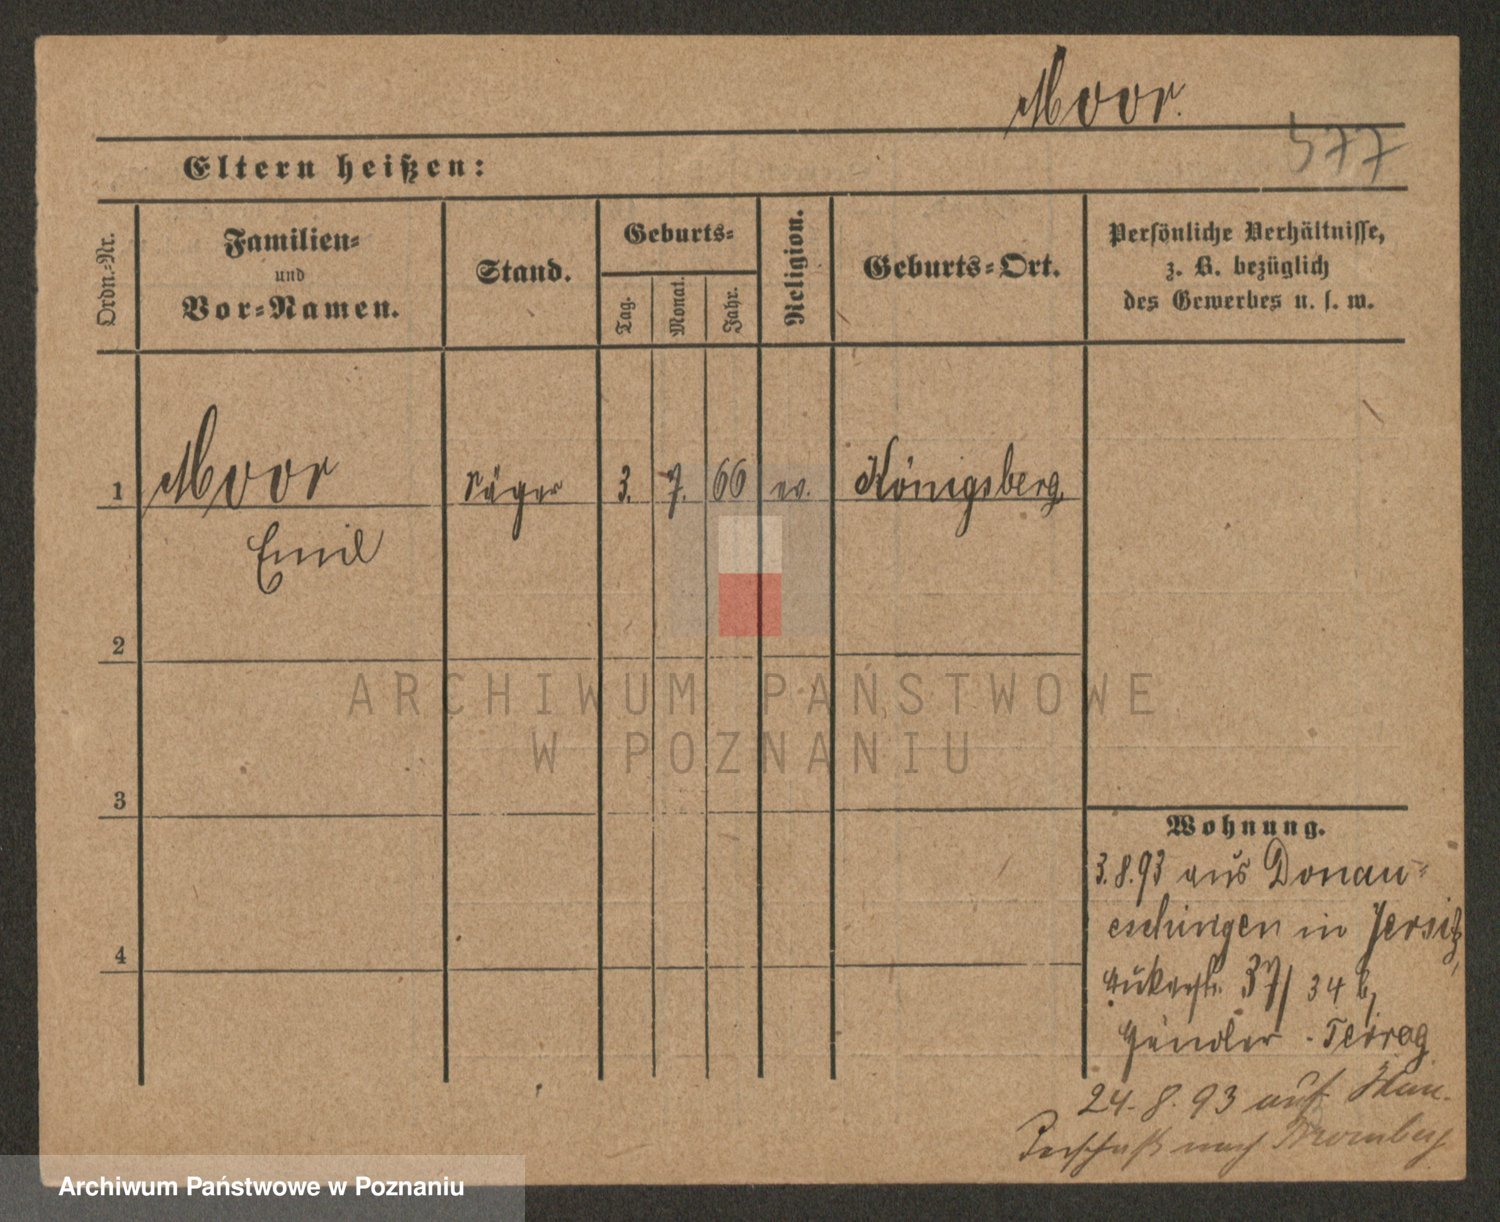 Moor.
577
Eltern heißen:
Ordn.-Nr.
Familien-
und
Vor-Namen.
Stand.
Geburts-
Tag.
Monat.
Jahr.
Religion.
Geburts-Ort.
Persönliche Verhältnisse,
z. B. bezüglich
des Gewerbes u. s. w.
1 Moor 3. 7. 66 ev. Königsberg
Emil
2
ARCHIWUM PAŃSTWOWE
W POZNANIU
3
Wohnung.
3.8.93 aus Donau-
eschingen in Jersitz,
37/34 b,
4
24. 8. 93 auf
nach Bromberg
Archiwum Państwowe w Poznaniu